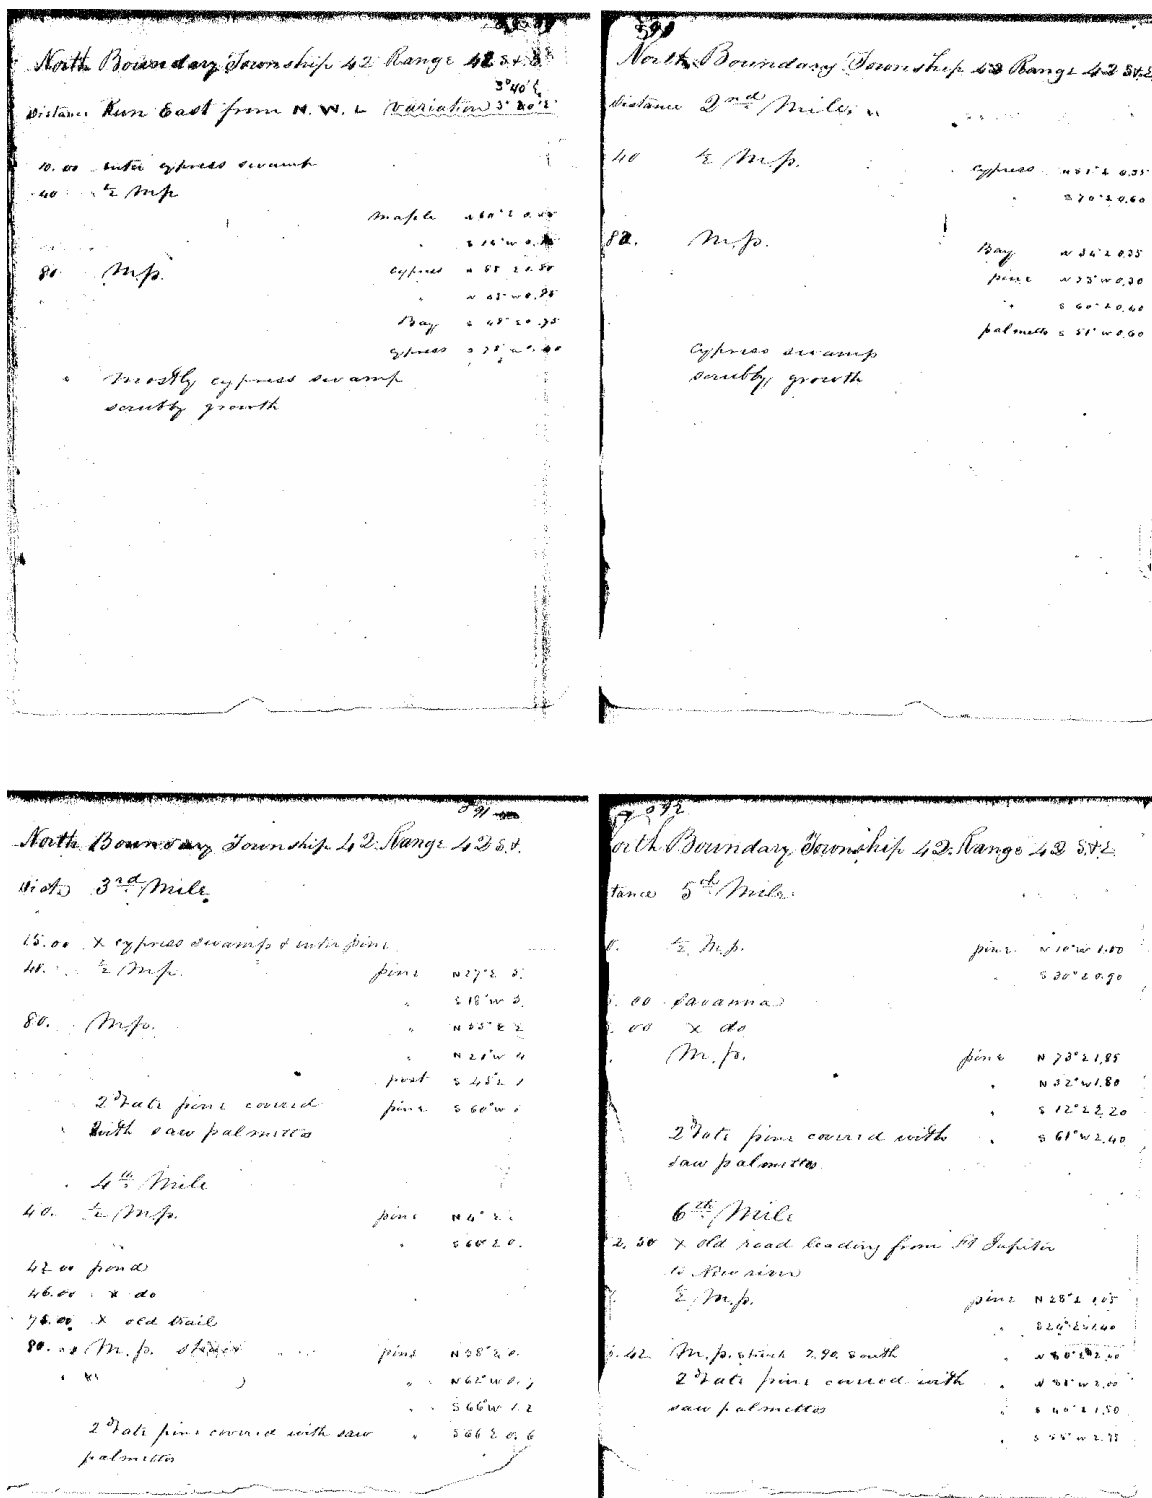 North Boundary Township 42 Range 42 S & E
3°40'E
Distance Run East from N. W. L variation
10.00 enter cypress swamp
40 ½ M.p.
Maple
80. M.p. cypress
Bay
cypress
Mostly cypress swamp
scrubby growth
North Boundary Township 42 Range 42 S & E
Distance 2nd Mile
40 ½ M.p. cypress
S 70° E 0.60
80. M.p. Bay N 34° E 0.35
pine N 35° W 0.30
" S 60° E 0.40
palmetto S 51° W 0.60
cypress swamp
scrubby growth
891
North Boundary Township 42. Range 42 S. &.
Dista 3rd Mile
15.00 x cypress swamp & enter pine
40. ½ M.p. pine N 27° E
" S 18° W 3
80. M.p. "
" N 21° W 4
post S 45 E
2d rate pine covered pine S 60° W
with saw palmettos
4th Mile
40. ½ M.p. pine N 4° E
" S 60 E 0.
42 00 pond
46.00 x do
x old trail
80. M.p. pine N 38° E 0.
" N 62° W 0.
" S 66 W 1.2
2d rate pine covered with saw " S 66 E 0.6
palmettos
892
orth Boundary Township 42. Range 42 S. & E.
tance 5th Mile
½ M.p. pine N 10° W 1.00
" S 30° E 0.90
00 Savanna
00 x do
M.p. pine N 73° E 1.85
" N 32° W 1.80
" S 12° E 2.20
2d rate pine covered with " S 61° W 2.40
saw palmettos
6th Mile
2.50 x old road leading from Ft Jupiter
to New river
½ M.p. pine N 28° E 1.05
"
.42 M.p. struck 2.90 South "
2d rate pine covered with "
saw palmettos " S 40° E 1.50
"